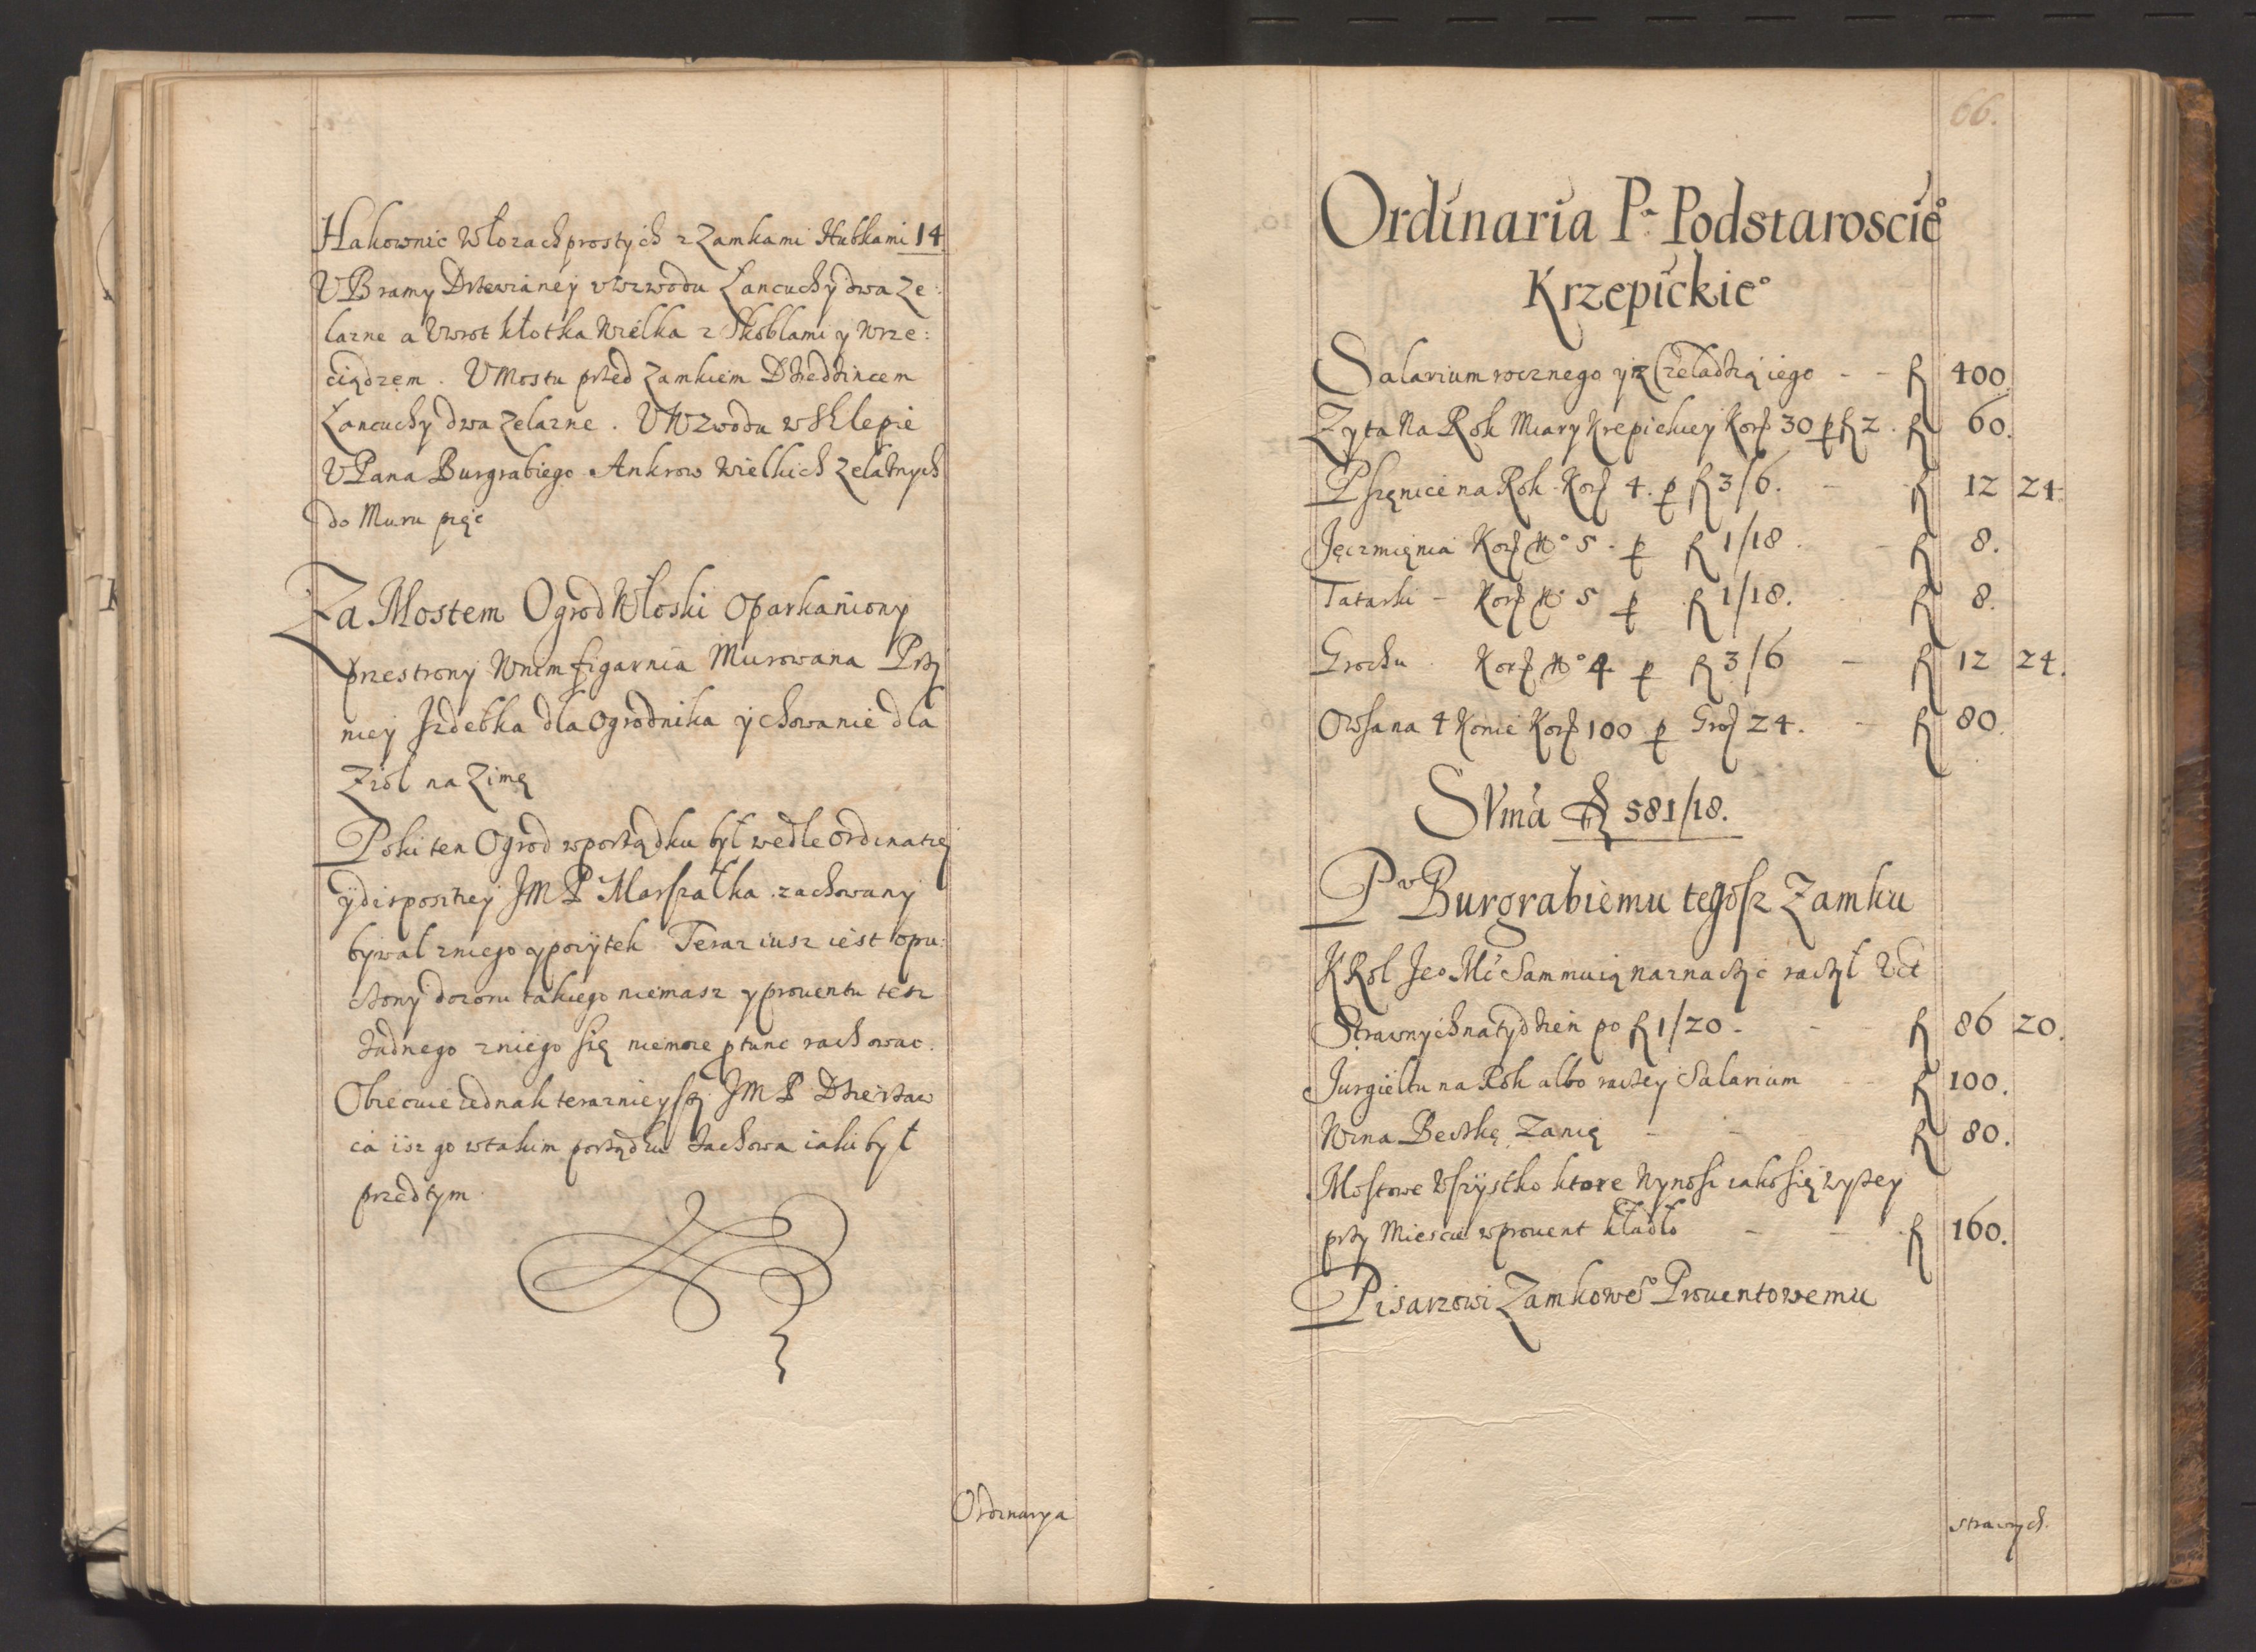 Hakownic Włozach prostych z Zamkami Hubkami 14
V Bramy Drzewianey v wzwodu Łancuchy dwa Ze:
lazne a Vwrot kłotka Wielka z Skoblami y Wrze:
ciądzem. V Mostu przed Zamkiem Dziedzincem
Łancuchy dwa Zelazne. V Wzwodu w Sklepie
V Pana Burgrabiego Ankrow Wielkich Zelaznych
do Muru pięć
Za Mostem Ogrod Włoski Oparkaniony
przestrony Wnim figarnia Murowana Przy
niey Jzdebka dla Ogrodnika y chowanie dla
Zioł na Zimę
Poki ten Ogrod w porządku był wedle Ordinatiey
y dispositiey JM P Marszałka zachowany
bywał zniego y pozytek Teraz iusz iest opu:
szony dozoru takiego niemasz y prouentu tesz
żadnego zniego się niemoze p tunc rachowac.
Obiecuie iednak terznieyszy JM P Dzierzaw
ca isz go w takim porządku Zachowa iaki był
przedtym
Ordinarya
66.
Ordinaria Pa Podstaroscieo
Krzepickieo
Salarium rocznego y z Czeladzią iego - - fl 400.
Zyta Na Rok Miary Krzepickiey Korz 30 p fl 2. fl 60.
Pszenice na Rok Korz 4. p fl 3/6. - fl 12 24
Jęczmienia Korz No 5 - p fl 1/18. - fl 8.
Tatarki - Korz No 5 p fl 1/18. fl 8.
Grochu Korz No 4 p fl 3/6 - fl 12 24.
Owsa na 4 Konie Korz 100 p Grosz 24. - fl 80.
SVma fl 581/18.
Pu Burgrabiemu tegosz Zamku
K Rol Jeo Mć Sam mu ią naznaczyc raczył Vt
Strawnych na tydzień po fl 1/20 - - fl 86 20.
Jurgieltu na Rok albo raczey Salarium - - fl 100.
Wina Beczkę Zanię - - - fl 80.
Mostowe Wszystko ktore Wynosi iako się wyszey
przy Miescie w prouent kładło - - fl 160.
Pisarzowi Zamkoweo Prouentowemu
strawnych.